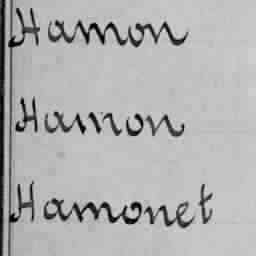 Hamon
Hamon
Hamonet